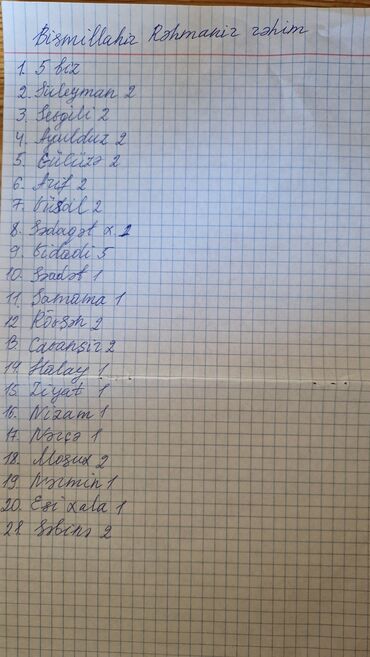 Bismillahir Rəhmanir rəhim
1. 5 biz
2. Süleyman 2
3. Sevgili 2
4. Ayulduz 2
5. Gülüzə 2
6. Arif 2
7. 2
8. Sədaqət x. 2
9. Vidadi 5
10. Səadət 1
11. Samama 1
12. Rövşən 2
13. Cavanşir 2
14. Halay 1
15. Ziyat 1
16. Nizam 1
17. 1
18. 2
19. Nərmin 1
20. xala 1
21. Səbinə 2